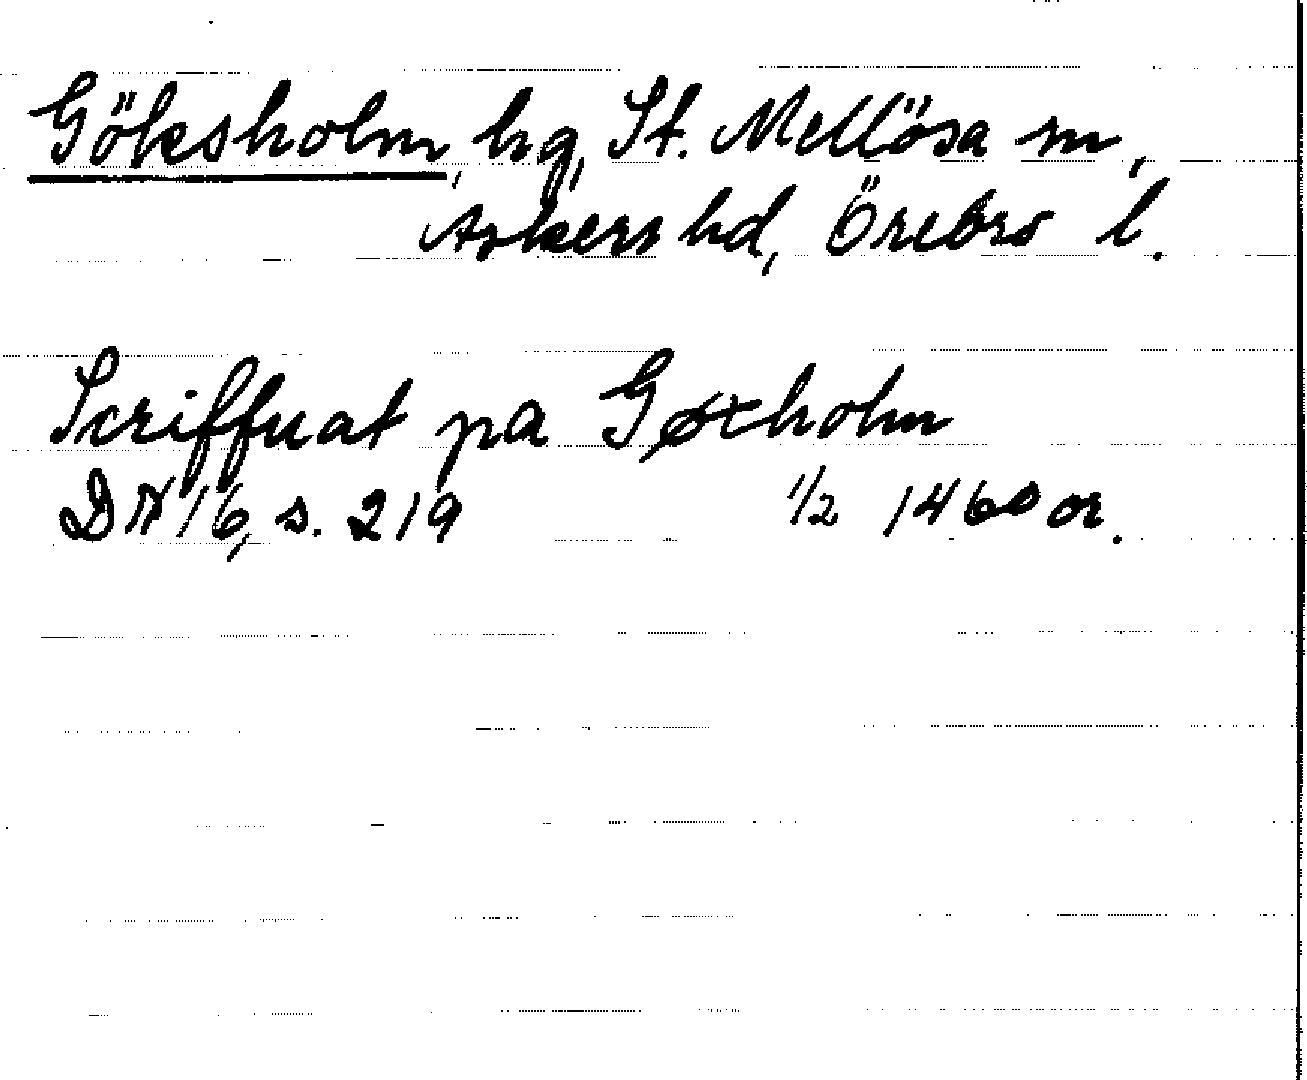 Göksholm, hg, St. Mellösa sn,
Askers hd, Örebro l.
Scriffuat pa Gøxholm
DN 16, s. 219 1/2 1460 or.